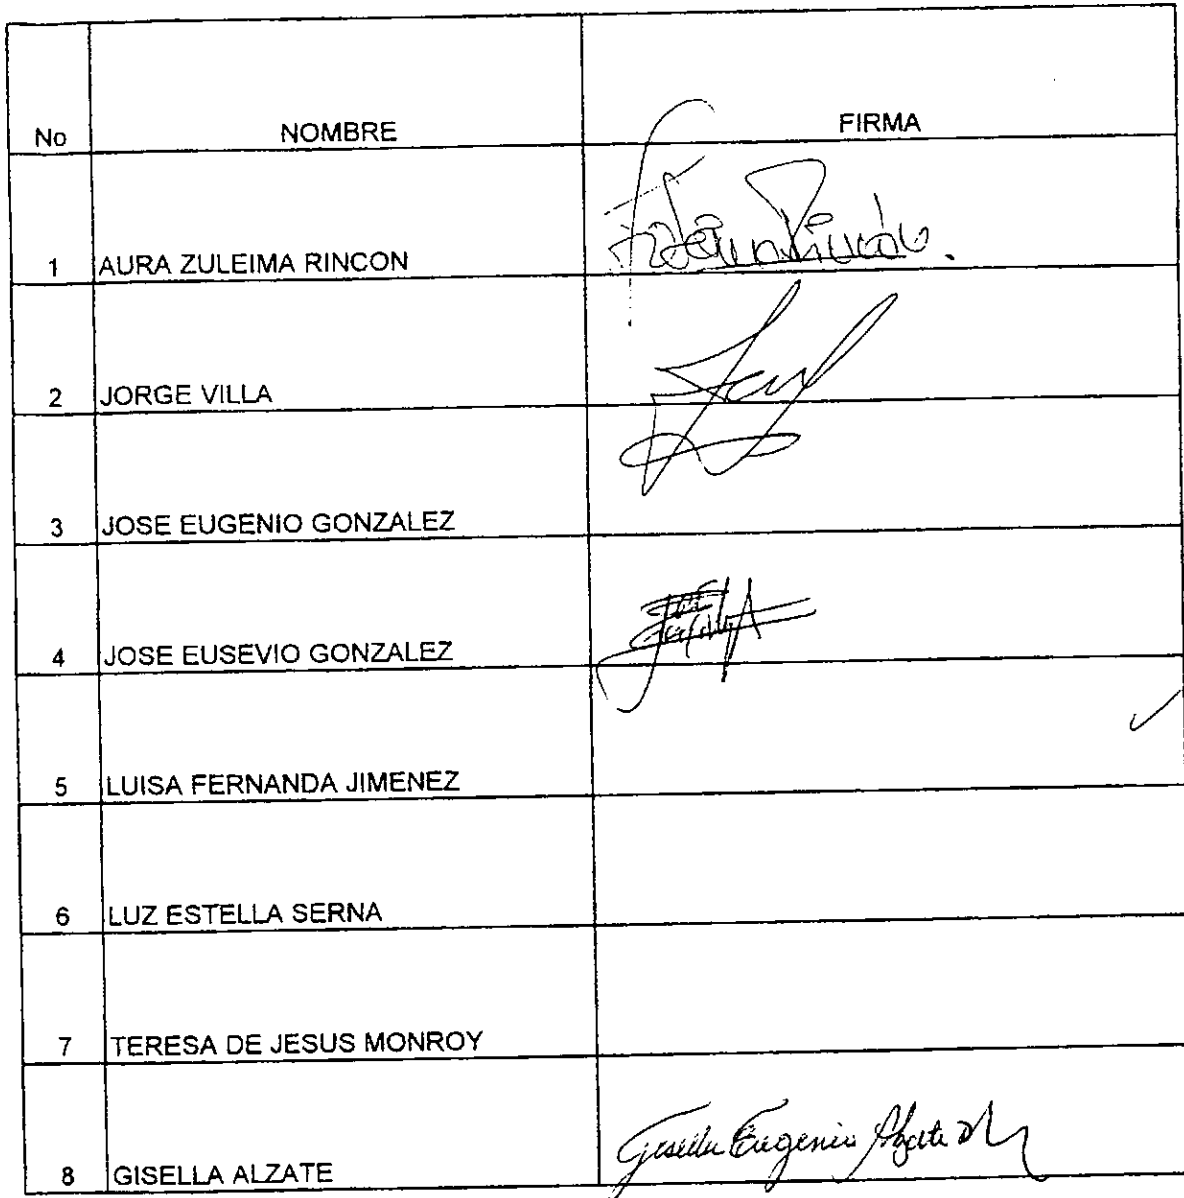 No NOMBRE FIRMA
1 AURA ZULEIMA RINCON
2 JORGE VILLA
3 JOSE EUGENIO GONZALEZ
4 JOSE EUSEVIO GONZALEZ
5 LUISA FERNANDA JIMENEZ
6 LUZ ESTELLA SERNA
7 TERESA DE JESUS MONROY
8 GISELLA ALZATE Gisella Eugenia Alzate